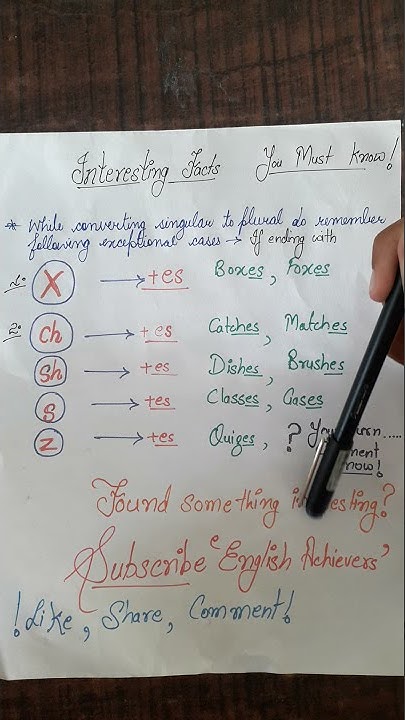 Interesting Facts You Must Know!
* While converting singular to plural do remember
following exceptional cases → If ending with
1. X → +es Boxes, Foxes
2. ch → +es Catches, Matches
sh → +es Dishes, Brushes
s → +es Classes, Gases
z → +es Quizes, ?
now!
Found something
Subscribe 'English Achievers'
! Like, Share, Comment!